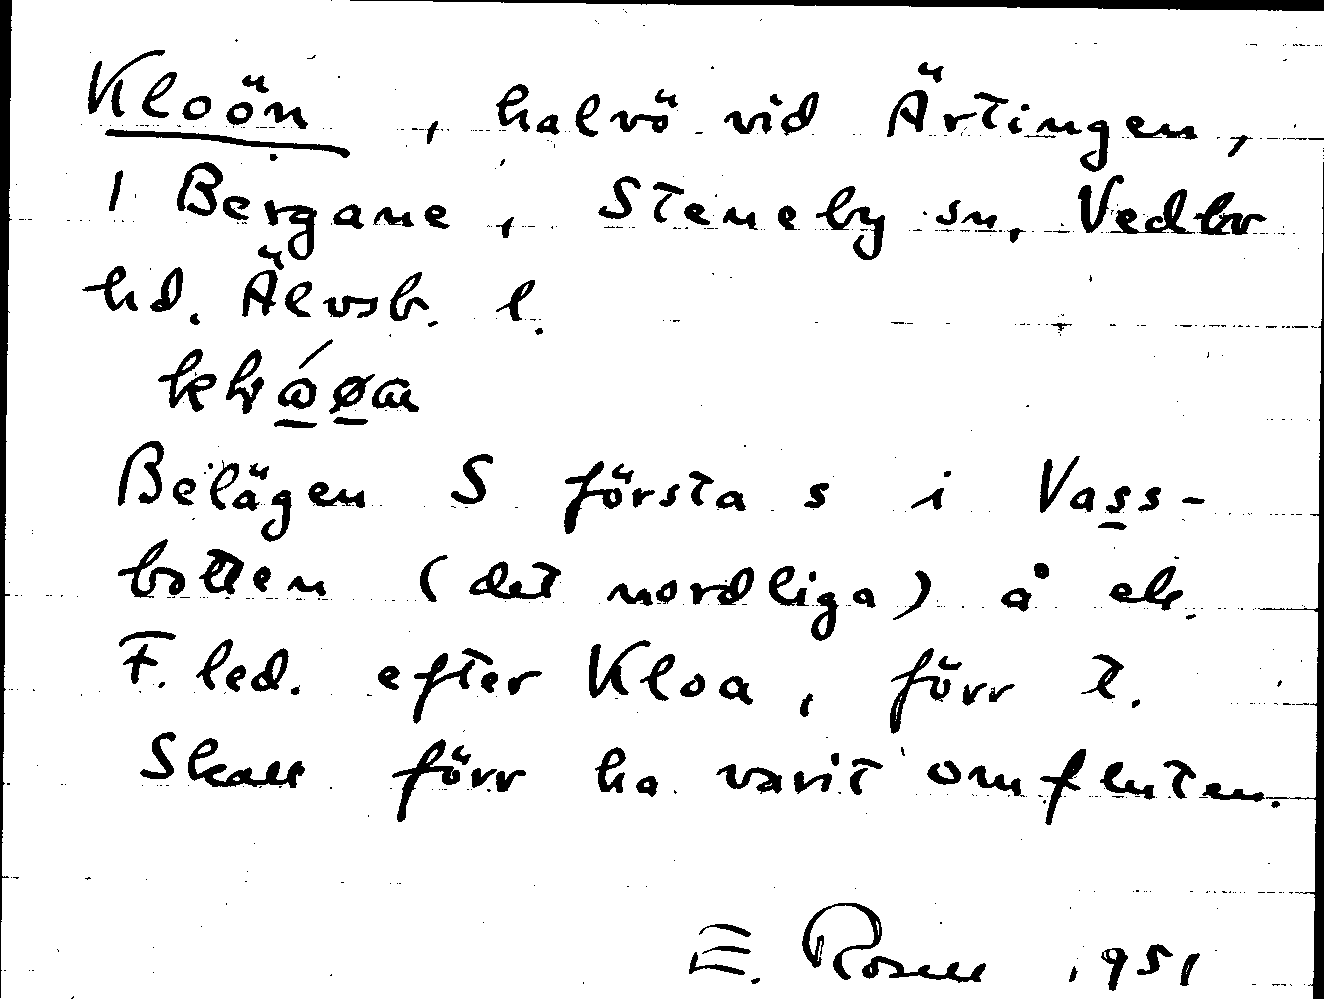 Kloön, halvö vid Ärtingen,
1 Bergane, Steneby sn, Vedbo
hd. Älvsb. l.
Belägen S första s i Vass-
botten (det nordliga) å ek.
F. led. efter Kloa, förr t.
Skall förr ha varit omfluten.
E. Rosell 1951